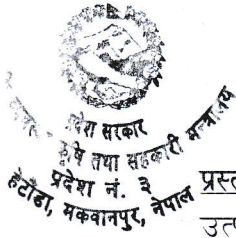 प्रदेश सरकार
कृषि तथा सहकारी मन्त्रालय
प्रदेश नं. ३
हेटौंडा, मकवानपुर, नेपाल
प्रस्त
उत्प